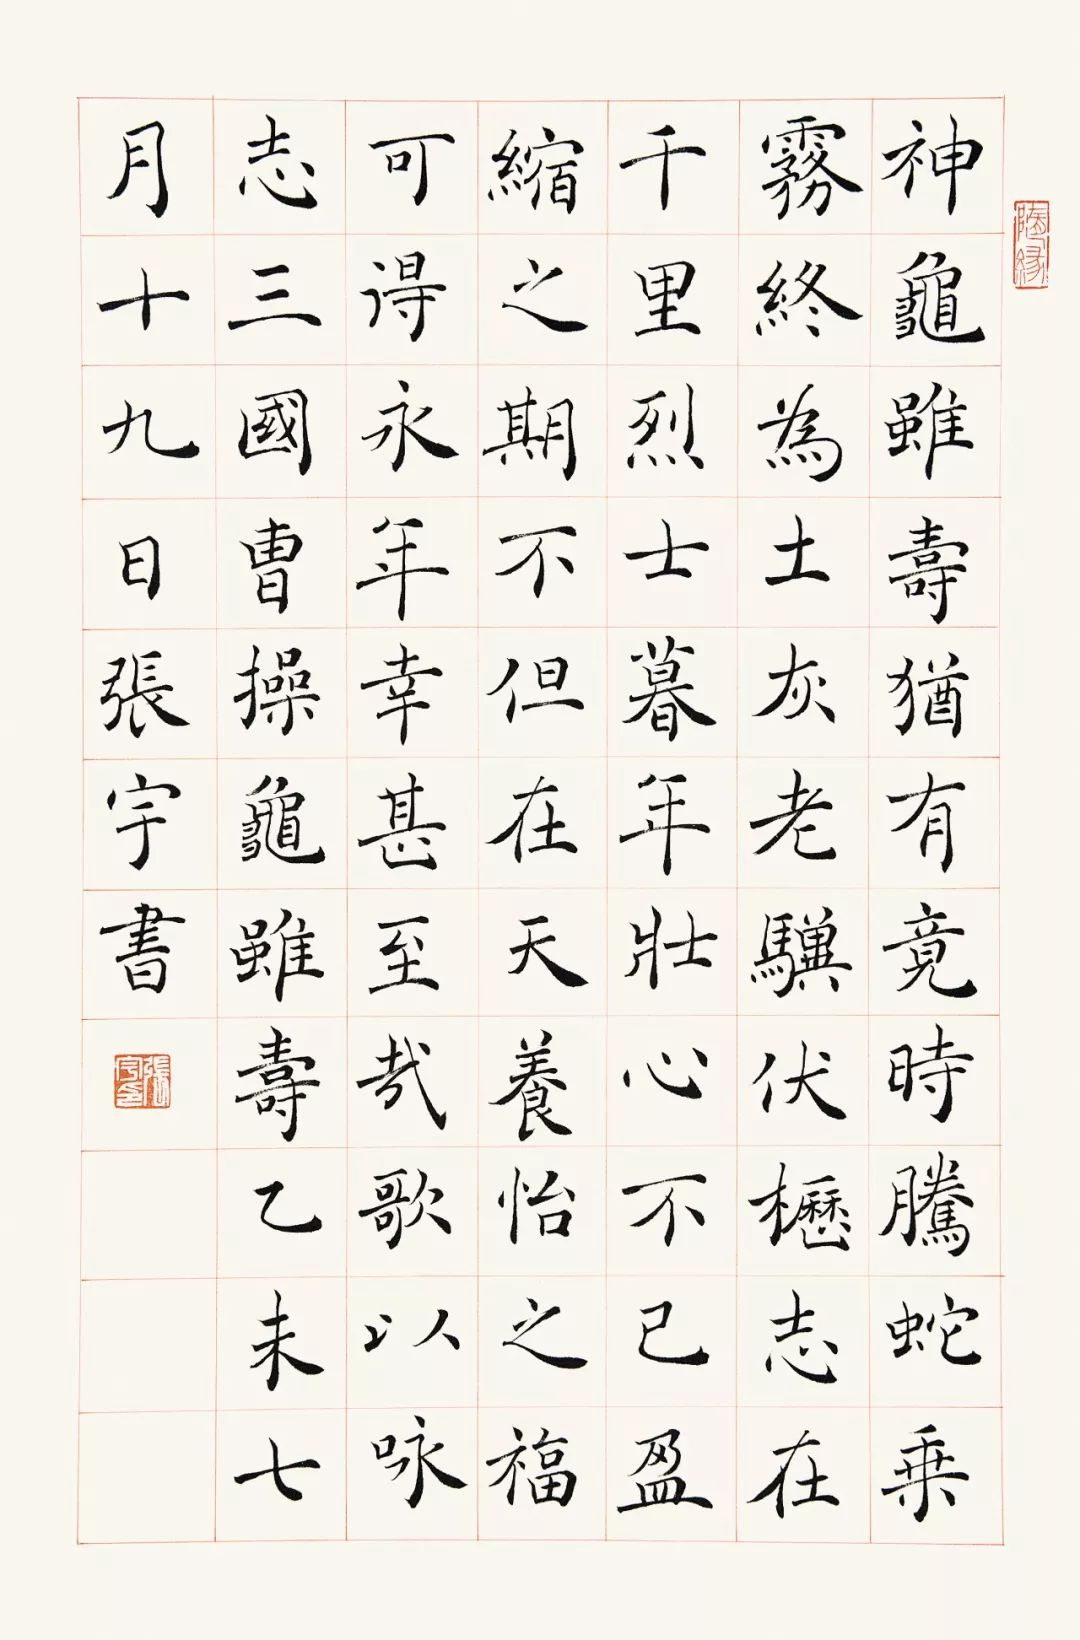 神龜雖壽猶有竟時騰蛇乗
霧終為土灰老驥伏櫪志在
千里烈士暮年壯心不已盈
縮之期不但在天養怡之福
可得永年幸甚至哉歌以咏
志三國曹操龜雖壽乙未七
月十九日張宇書
張宇印